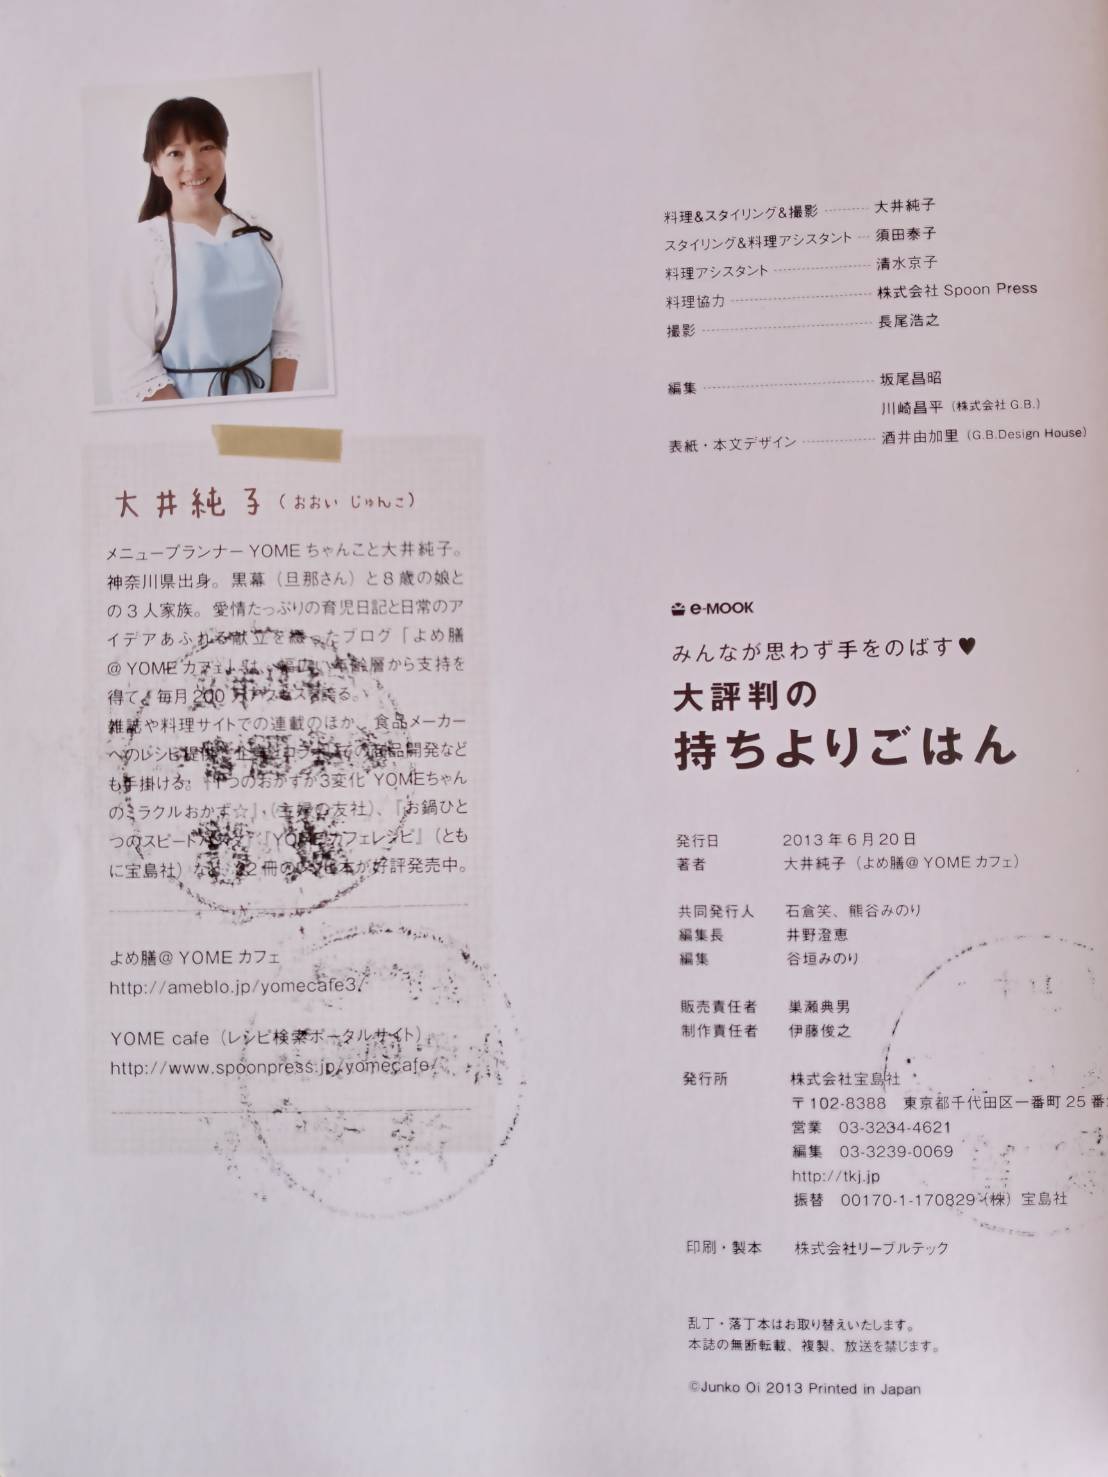 大井純子（おおい じゅんこ）
メニュープランナー YOME ちゃんこと大井純子。
神奈川県出身。黒幕（旦那さん）と8歳の娘と
の3人家族。愛情たっぷりの育児日記と日常のア
イデアあふれる献立を綴ったブログ「よめ膳
@YOME カフェ」は、幅広い年齢層から支持を
得て、毎月200万アクセスを誇る。
雑誌や料理サイトでの連載のほか、食品メーカー
へのレシピ提供、企業とコラボでの商品開発など
も手掛ける。『1つのおかずが3変化 YOMEちゃん
のミラクルおかず☆』（主婦の友社）、『お鍋ひと
つのスピード』『YOMEカフェレシピ』（とも
に宝島社）など、22冊のレシピ本が好評発売中。
よめ膳@YOME カフェ
http://ameblo.jp/yomecafe3/
YOME cafe（レシピ検索ポータルサイト）
http://www.spoonpress.jp/yomecafe/
料理&スタイリング&撮影 大井純子
スタイリング&料理アシスタント 須田泰子
料理アシスタント 清水京子
料理協力 株式会社 Spoon Press
撮影 長尾浩之
編集 坂尾昌昭
川崎昌平（株式会社 G.B.）
表紙・本文デザイン 酒井由加里（G.B.Design House）
e-MOOK
みんなが思わず手をのばす♥
大評判の
持ちよりごはん
発行日 2013年6月20日
著者 大井純子（よめ膳@YOME カフェ）
共同発行人 石倉笑、熊谷みのり
編集長 井野澄恵
編集 谷垣みのり
販売責任者 巣瀬典男
制作責任者 伊藤俊之
発行所 株式会社宝島社
〒102-8388 東京都千代田区一番町25番
営業 03-3234-4621
編集 03-3239-0069
http://tkj.jp
振替 00170-1-170829（株）宝島社
印刷・製本 株式会社リーブルテック
乱丁・落丁本はお取り替えいたします。
本誌の無断転載、複製、放送を禁じます。
©Junko Oi 2013 Printed in Japan